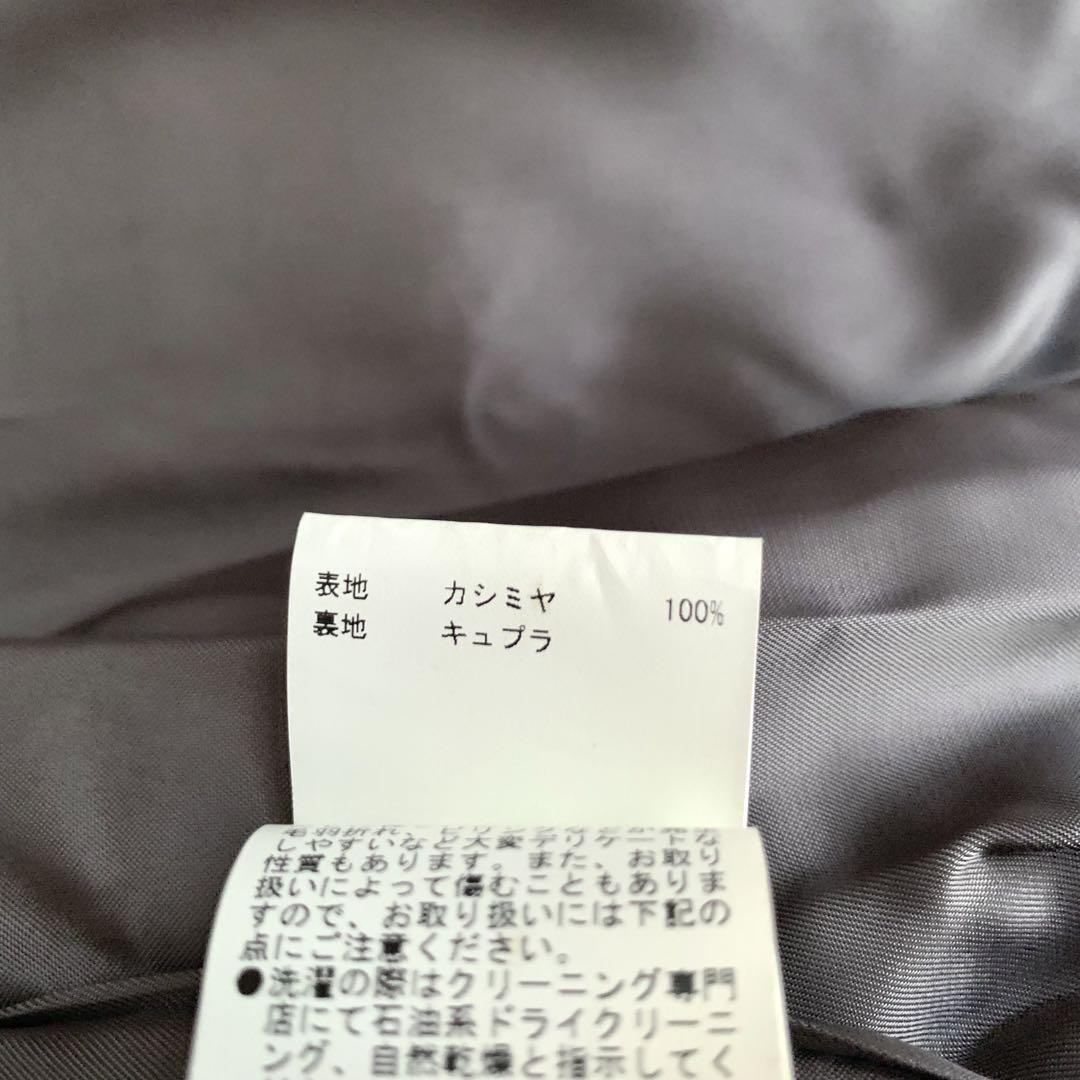 表地 カシミヤ 100%
裏地 キュプラ
しやすいなど大変デリケートな
性質もあります。また、お取り
扱いによって傷むこともありま
すので、お取り扱いには下記の
点にご注意ください。
●洗濯の際はクリーニング専門
店にて石油系ドライクリーニ
ング、自然乾燥と指示してく